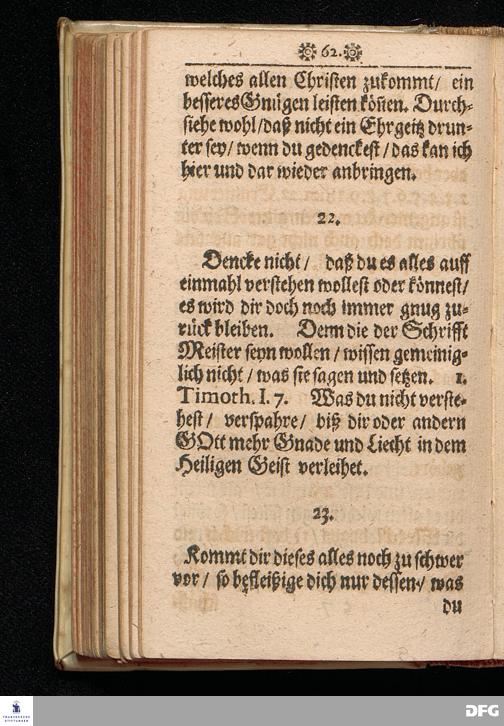 62.
welches allen Christen zukommt/ ein
besseres Gnügen leisten köñen. Durch-
siehe wohl/daß nicht ein Ehrgeitz drun-
ter sey/wenn du gedenckest/das kan ich
hier und dar wieder anbringen.
22.
Dencke nicht/ daß du es alles auff
einmahl verstehen wollest oder könnest/
es wird dir doch noch immer gnug zu-
rück bleiben. Denn die der Schrifft
Meister seyn wollen/wissen gemeinig-
lich nicht/was sie sagen und setzen. 1.
Timoth. I. 7. Was du nicht verste-
hest/ verspahre/ biß dir oder andern
GOtt mehr Gnade und Liecht in dem
Heiligen Geist verleihet.
23.
Kommt dir dieses alles noch zu schwer
vor/ so befleißige dich nur dessen/ was
du
FRANCKESCHE
STIFTUNGEN
DFG